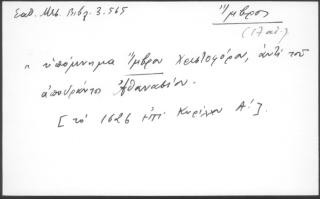 Σαθ. Μεσ. Βιβλ. 3.565
Ἴμβρος
(17 αἰ.)
" ὑπόμνημα Ἴμβρου Χριστοφόρου, ἀντὶ τοῦ
ἀποθανόντος Ἀθανασίου.
[τό 1626 ἐπί Κυρίλλου Α΄].